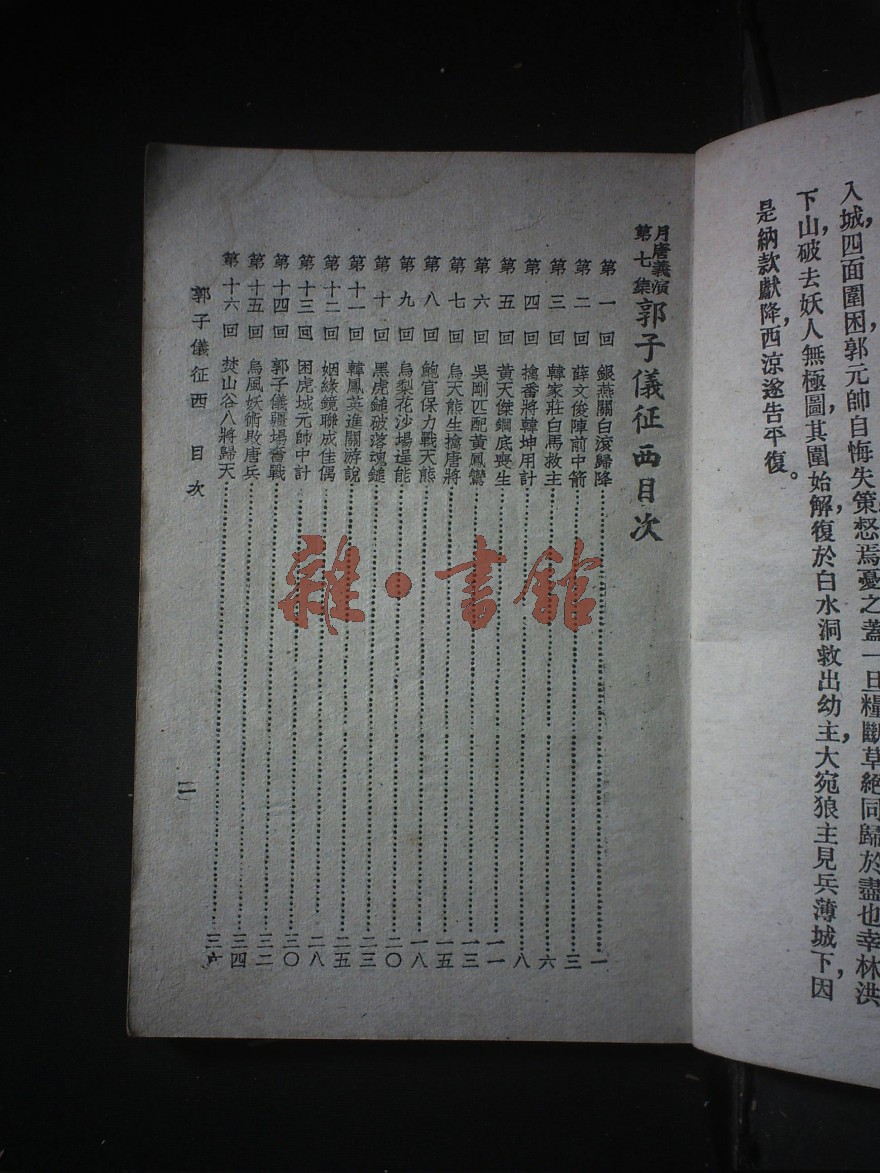 入城，四面圍困，郭元帥自悔失策，愁焉憂之，蓋一旦糧斷草絕，同歸於盡也，幸林洪
下山，破去妖人無極圖，其圍始解，復於白水洞救出幼主，大宛狼主見兵薄城下，因
是納款獻降，西涼遂告平復。
月唐義演第七集郭子儀征西目次
第一回 銀燕關白滾歸降 一
第二回 薛文俊陣前中箭 三
第三回 韓家莊白馬救主 六
第四回 擒番將韓坤用計 八
第五回 黃天傑鐧底喪生 一一
第六回 吳剛匹配黃鳳鸞 一三
第七回 烏天熊生擒唐將 一五
第八回 鮑官保力戰天熊 一八
第九回 烏梨花沙場逞能 二〇
第十回 黑虎鎚破落魂鎚 二三
第十一回 韓鳳英進關游說 二五
第十二回 姻緣鏡聯成佳偶 二八
第十三回 困虎城元帥中計
第十四回 郭子儀疆場奮戰 三〇
第十五回 烏風妖術敗唐兵 三二
第十六回 焚山谷八將歸天 三四
三六
郭子儀征西 目次
二
雜·書館